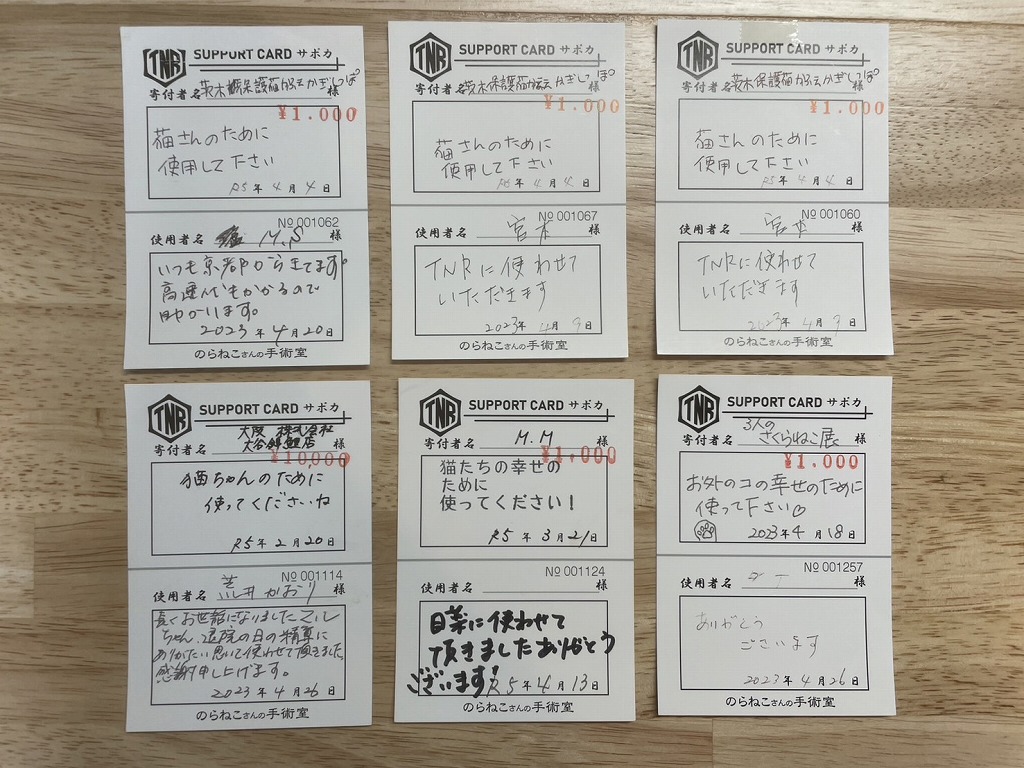 TNR SUPPORT CARD サポカ
寄付者名 茨木保護猫カフェかぎしっぽ 様
¥1.000
猫さんのために
使用して下さい
R5年 4月 4日
No 001062
使用者名 M.S 様
いつも京都からきてます。
高速代もかかるので
助かります。
2023年 4月 20日
のらねこさんの手術室
TNR SUPPORT CARD サポカ
寄付者名 茨木保護猫カフェかぎしっぽ 様
¥1.000
猫さんのために
使用して下さい
R5年 4月 4日
No 001067
使用者名 宮本 様
TNRに使わせて
いただきます
2023年 4月 9日
のらねこさんの手術室
TNR SUPPORT CARD サポカ
寄付者名 茨木保護猫カフェかぎしっぽ 様
¥1.000
猫さんのために
使用して下さい
R5年 4月 4日
No 001060
使用者名 宮本 様
TNRに使わせて
いただきます
2023年 4月 9日
のらねこさんの手術室
TNR SUPPORT CARD サポカ
大阪 株式会社
寄付者名 大谷 店 様
¥10,000
猫ちゃんのために
使ってくださいね
R5年 2月 20日
No 001114
使用者名 荒井かおり 様
長くお世話になりましたマル
ちゃん、退院の日の精算に
ありがたい思いで使わせて頂きました。
感謝申し上げます。
2023年 4月 26日
のらねこさんの手術室
TNR SUPPORT CARD サポカ
寄付者名 M.M 様
¥1.000
猫たちの幸せの
ために
使ってください!
R5年 3月 21日
No 001124
使用者名 様
目薬に使わせて
頂きましたありがとう
ございます!
R5年 4月 13日
のらねこさんの手術室
TNR SUPPORT CARD サポカ
3人の
寄付者名 さくらねこ展 様
¥1.000
お外のコの幸せのために
使って下さい♡
2023年 4月 18日
No 001257
使用者名 様
ありがとう
ございます
2023年 4月 26日
のらねこさんの手術室